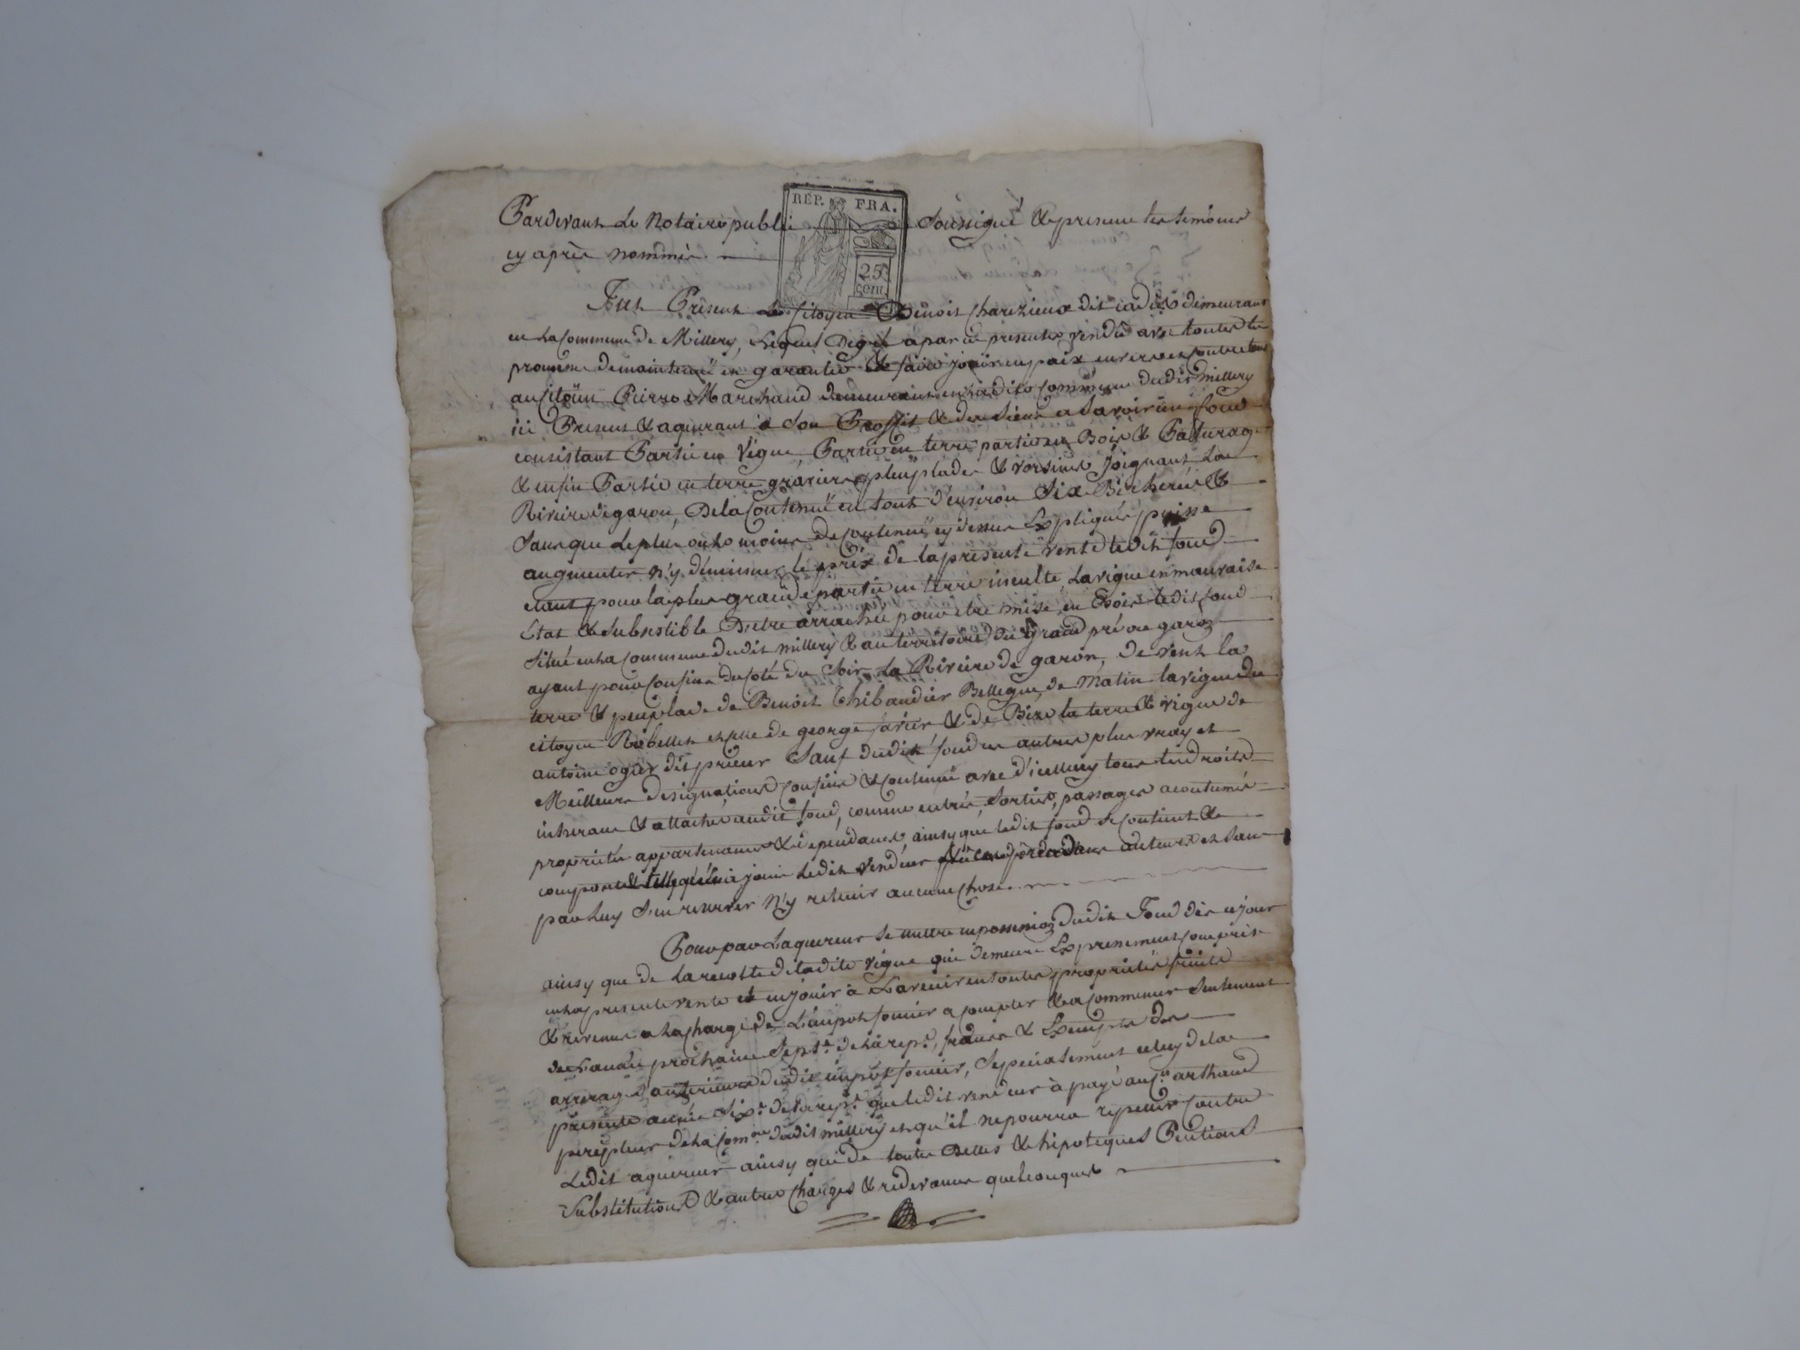 RÉP. FRA.
25 cent.
Pardevant Le Notaire public Soussigné & presence les temoins
cy aprés nommés
Fut Présent Le Citoyen Benoit Charezieux dit cadet demeurant
en La Commune de Millery, Lequel Degré a par ces presentes vendu avec toutes les
promesse de maintenue en garantie & faire jouir en paix envers et contre tous
au Citoyen Pierre Marchand demeurant en ladite Commune dudit millery
ici Present & aquerant à Son Proffit & des Siens a Savoir un fond
consistant Partie en Vigne, Partie en terre partie en Bois & Paturage
& enfin Partie en terre graviere peuplades & vorsines Joignant La
Riviere de garon, De la Contenue en tout d'environ Six Bicherées &
Sans que Le plus ou Le moins de Contenue cy dessus Expliquée puisse
augmenter n'y diminuer le prix de la présente vente ledit fond
etant pour la plus grande partie en terre inculte, La vigne en mauvaise
Etat & Subsestible D'etre arrachée pour etre mise en Bois ledit fond
Situé en La Commune dudit millery & au territoire du grand pré ou garon
ayant pour Confins du Coté du Soir La Riviere de garon, de vent la
terre & peuplade de Benoit Thibaudier Bellegue, de Matin la vigne du
citoyen Rebellet et celle de george & de Bize la terre & vigne de
antoine ogier dit prieur Sauf dudit fond ses autres plus vray et
Meilleurs designations Confins & Contenue avec d'iceluy tous les droits
inherans & attachés audit fond, comme entrée, Sorties, passages acoutumés
propriétés appartenances & dependances ainsy que ledit fond se Contient &
comporte & telle qu'en a joui Ledit vendeur auteurs et Sans
par Luy S'en reserver n'y retenir aucune Chose.
Pour par Laquereur se mettre en possession dudit Fond dès ce jour
ainsy que de La recolte de ladite vigne qui demeure Expressement Comprise
en La presente vente et en jouir à L'avenir en toutes propriétés fruits
& revenus a La charge de L'impot foncier a Compter & a Commencer Seulement
de L'année prochaine Septe. de La repe. franche & Exempte des
arrerages anterieurs dudit impot foncier, Sepecialement celuy de la
présente année Sixe. de la repe. que ledit vendeur à payé au Cn. arthaud
percepteur de La Comune dudit millery et qu'il ne pourra repeter Contre
Ledit aquereur ainsy que de toutes Dettes & hipoteques Peutions
Substitutions & autres Charges & redevances quelconques